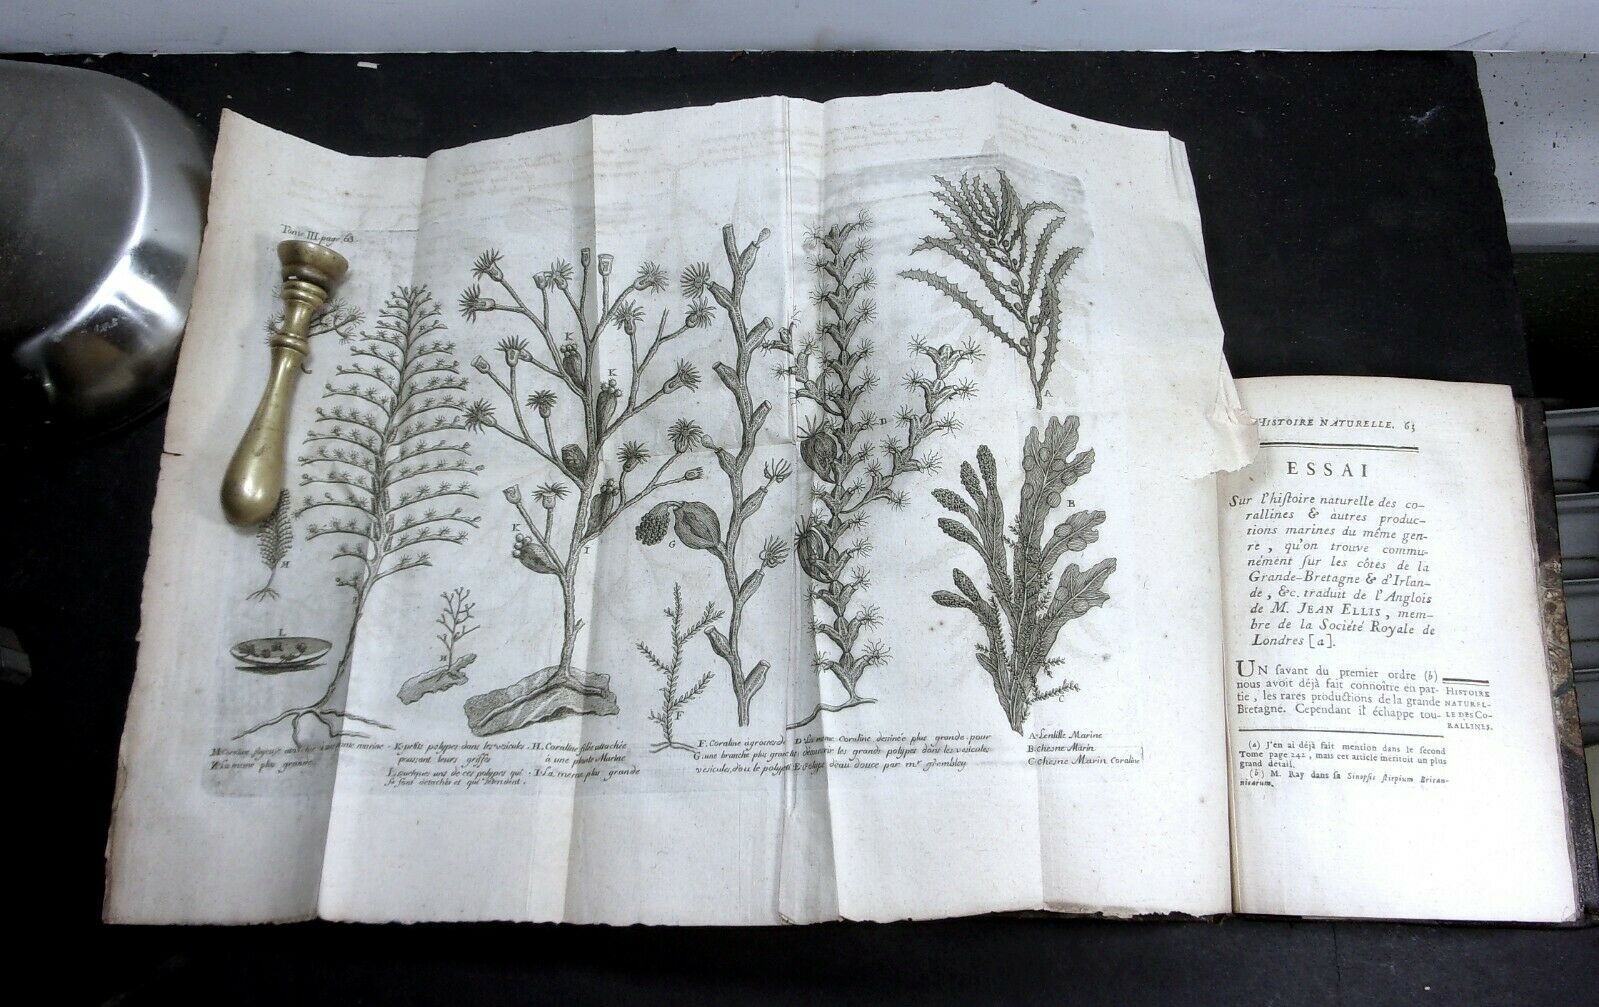 Tome III. page 63.
K
K
K
K
I
G
F
H
H
L
D
A
B
C
K. petits polypes dans les vesicules
poussant leurs griffes
L. quelques uns de ces polypes qui
se sont detachés et qui
H. Coraline fille attachée
à une plante Marine
I. La meme plus grande
F. Coraline
G. une branche plus
vesicule, d'ou le polype
D. La meme Coraline dessinée plus grande pour
decouvrir les grands polypes dans les vesicules
E. Polype d'eau douce par mr.
A. Lentille Marine
B. Chesne Marin
C. Chesne Marin Coraline
HISTOIRE NATURELLE. 63
ESSAI
Sur l'histoire naturelle des co-
rallines & autres produc-
tions marines du même gen-
re, qu'on trouve commu-
nément sur les côtes de la
Grande-Bretagne & d'Irlan-
de, &c. traduit de l'Anglois
de M. JEAN ELLIS, mem-
bre de la Société Royale de
Londres [a].
UN savant du premier ordre (b)
nous avoit déjà fait connoître en par-
tie, les rares productions de la grande
Bretagne. Cependant il échappe tou-
HISTOIRE
NATUREL-
LE DES CO-
RALLINES.
(a) J'en ai déjà fait mention dans le second
Tome page 242, mais cet article méritoit un plus
grand détail.
(b) M. Ray dans sa Sinopsis stirpium Britan-
nicarum.